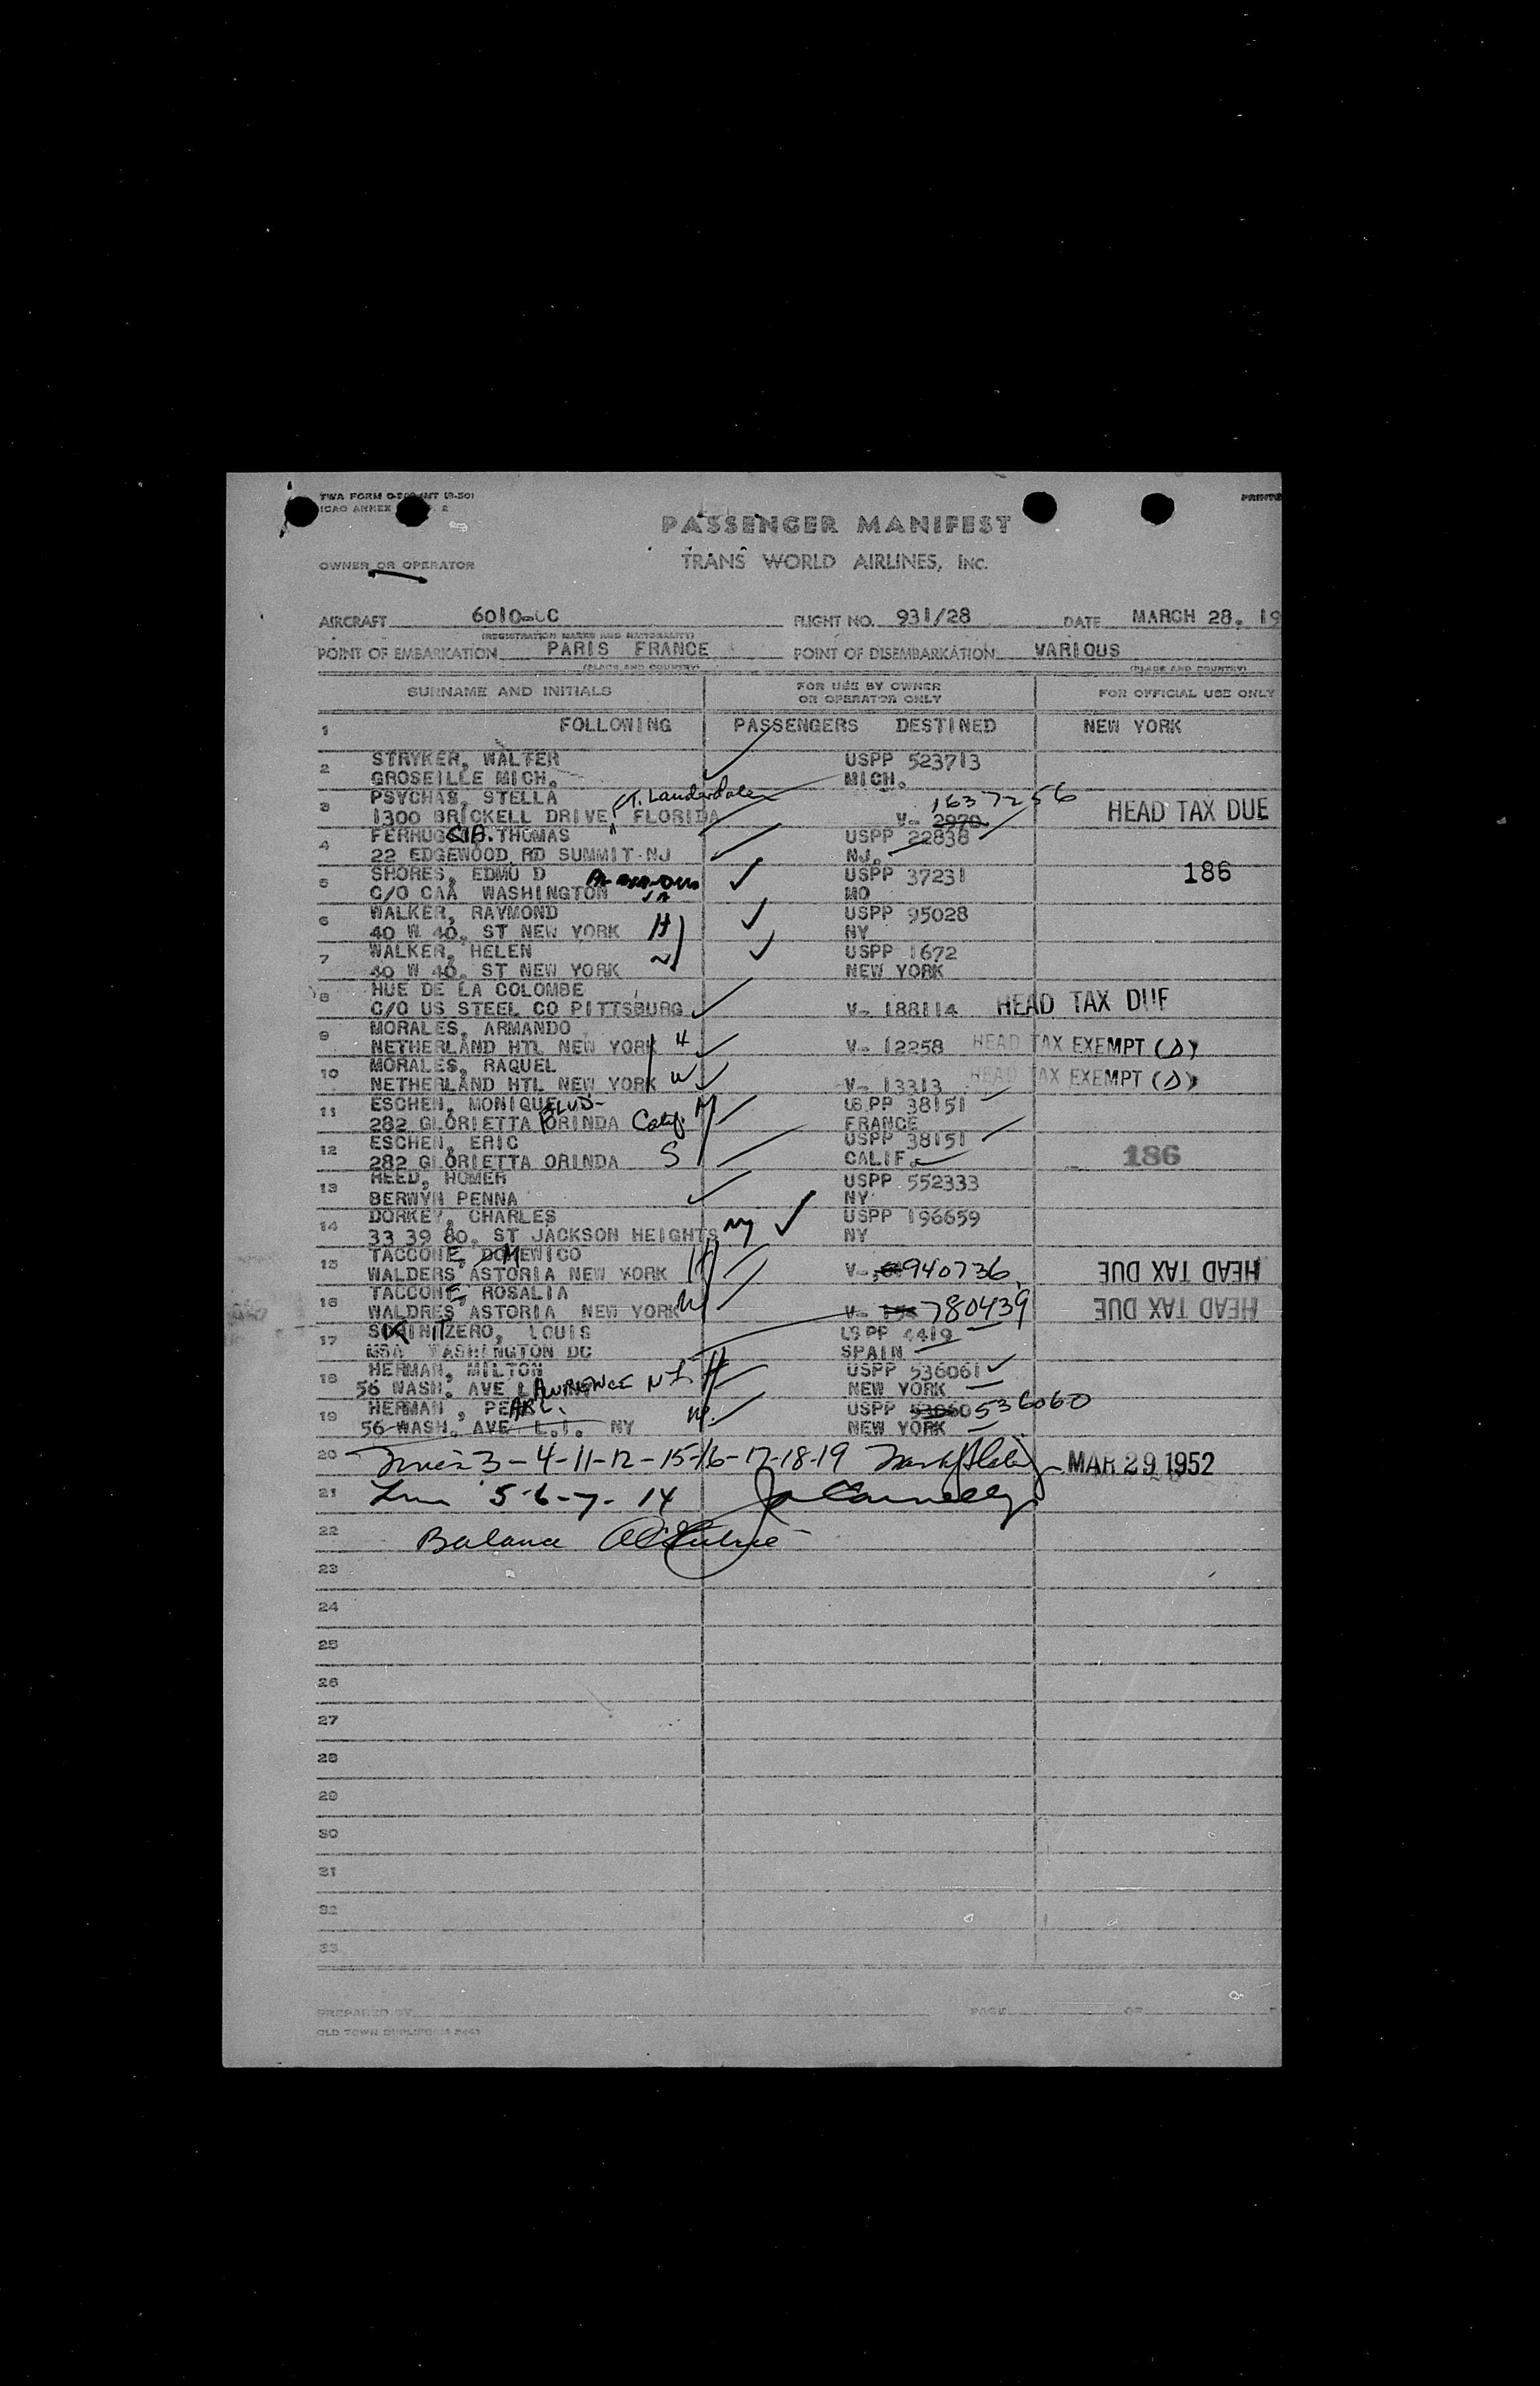 TWA FORM
ICAO ANNEX 2
PRINTE
PASSENGER MANIFEST
OWNER OR OPERATOR
TRANS WORLD AIRLINES, INC.
AIRCRAFT 6010-C FLIGHT NO. 931/28 DATE MARCH 28, 19
(REGISTRATION MARKS AND NATIONALITY)
POINT OF EMBARKATION PARIS FRANCE POINT OF DISEMBARKATION VARIOUS
(PLACE AND COUNTRY) (PLACE AND COUNTRY)
SURNAME AND INITIALS FOR USE BY OWNER OR OPERATOR ONLY FOR OFFICIAL USE ONLY
1 FOLLOWING PASSENGERS DESTINED NEW YORK
2 STRYKER, WALTER USPP 523713
GROSEILLE MICH. MICH.
3 PSYCHAS, STELLA FT. Lauderdale 1637256
1300 BRICKELL DRIVE, FLORIDA V- 2970 HEAD TAX DUE
4 FERRUGGIA. THOMAS USPP 22838
22 EDGEWOOD RD SUMMIT NJ NJ.
5 SHORES, EDMU D USPP 37231 186
C/O CAA WASHINGTON MO
6 WALKER, RAYMOND USPP 95028
40 W 40. ST NEW YORK H NY
7 WALKER, HELEN USPP 1672
40 W 40. ST NEW YORK W NEW YORK
8 HUE DE LA COLOMBE
C/O US STEEL CO PITTSBURG V- 188114 HEAD TAX DUE
9 MORALES, ARMANDO
NETHERLAND HTL NEW YORK H V- 12258 HEAD TAX EXEMPT (D)
10 MORALES, RAQUEL
NETHERLAND HTL NEW YORK W V- 13313 HEAD TAX EXEMPT (D)
11 ESCHEN, MONIQUE BLVD- M US PP 38151
282 GLORIETTA ORINDA Calif. FRANCE
12 ESCHEN, ERIC USPP 38151
282 GLORIETTA ORINDA S CALIF. 186
13 REED, HOMER USPP 552333
BERWYN PENNA NY
14 DORKEY, CHARLES USPP 196659
33 39 80. ST JACKSON HEIGHTS NY NY
15 TACCONE, DOMENICO
WALDERS ASTORIA NEW YORK H V- 940736 HEAD TAX DUE
16 TACCONE, ROSALIA
WALDRES ASTORIA NEW YORK W V- 780439 HEAD TAX DUE
17 ZERO, LOUIS US PP 4419
MSA WASHINGTON DC SPAIN
18 HERMAN, MILTON USPP 536061
56 WASH. AVE LAWRENCE H NEW YORK
19 HERMAN, PEARL. USPP 53060 536060
56 WASH. AVE L.I. NY W. NEW YORK
20 3-4-11-12-15-16-17-18-19 MAR 29 1952
21 5-6-7-14
22 Balance
23
24
25
26
27
28
29
30
31
32
33
PREPARED BY PAGE OF
OLD TOWN